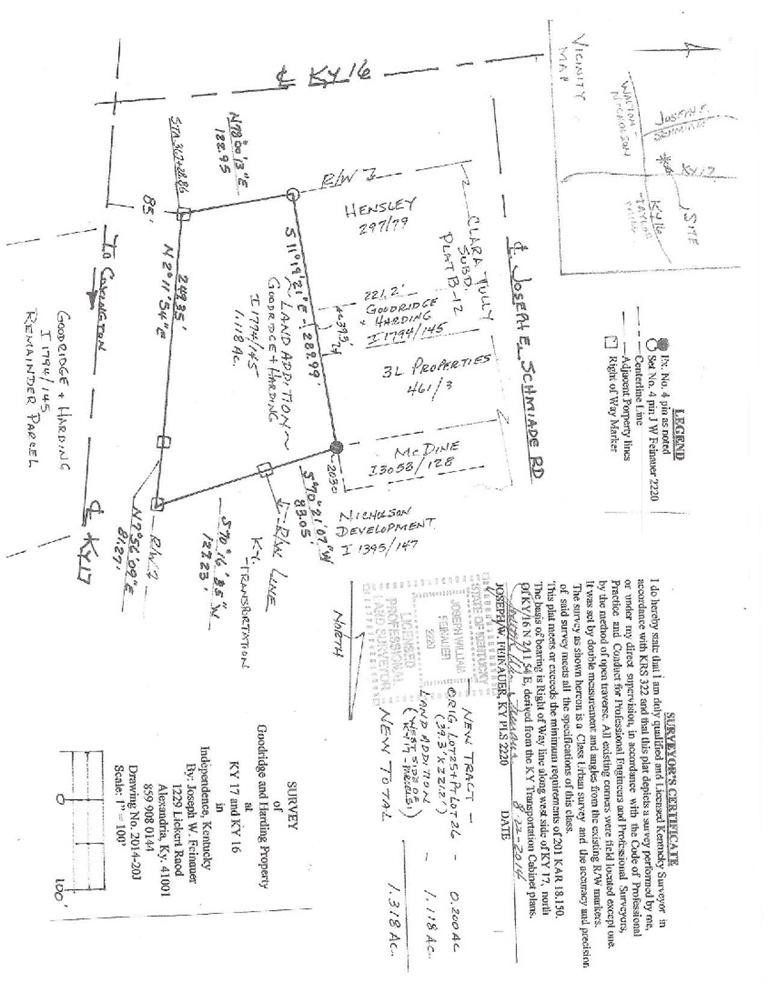 VICINITY
MAP
WALTON-
NICHOLSON
JOSEPH E.
SCHMIADE
KY17
KY16
SITE
LEGEND
Ex. No. 4 pin as noted
Set No. 4 pin J W Feinauer 2220
Centerline Line
Adjacent Porperty lines
Right of Way Marker
SURVEYOR'S CERTIFICATE
I do hereby state that I am duly qualified and Licensed Kentucky Surveyor in
accordance with KRS 322 and that this plat depicts a survey performed by me,
or under my direct supervision, in accordance with the Code of Professional
Practice and Conduct for Professional Engineers and Professional Surveyors,
by the method of open traverse. All existing corners were field located except one.
It was set by double measurement and angles from the existing R/W markers.
The survey as shown hereon is a Class Urban survey and the accuracy and precision
of said survey meets all the specifications of this class.
This plat meets or exceeds the minimum requirements of 201 KAR 18.150.
The basis of bearing is Right of Way line along west side of KY 17, north
of KY/16 N 2/11 54 E, derived from the KY Transportation Cabinet plans.
8-22-2014
JOSEPH W. FEINAUER, KY PLS 2220 DATE
STATE OF KENTUCKY
JOSEPH WILLIAM
FEINAUER
2220
LICENSED
PROFESSIONAL
LAND SURVEYOR
℄ KY16
℄ JOSEPH E. SCHMIADE RD
CLARA TULLY
SUBD.
PLAT B-12
R/W
HENSLEY
297/79
221.2'
GOODRIDGE
+ HARDING
I 1794/145
3L PROPERTIES
461/3
McDINE
I3058/128
NICHOLSON
DEVELOPMENT
I 1395/147
N78°00'13"E
122.95
S 11°19'21"E - 289.99'
~ LAND ADDITION ~
GOODRIDGE + HARDING
I 1794/145
1.118 AC.
2030
S 70°21'07"W
83.05'
R/W LINE
KY.
TRANSPORTATION
S 70°16' 85" W
127.23'
STA 367+28.86
85'
249.35'
N 2°11'54"E
R/W
N7°56'09"E
81.27'
TO COVINGTON
℄ KY17
GOODRIDGE + HARDING
I 1794/145
REMAINDER PARCEL
NORTH
NEW TRACT -
ORIG. LOT 25 + PT LOT 26 - 0.200 AC
(39.3' x 221.2')
LAND ADDITION - 1.118 AC.
(WEST SIDE OF
KY17 - PARCEL 1)
NEW TOTAL 1.318 AC.
SURVEY
of
Goodridge and Harding Property
at
KY 17 and KY 16
in
Independence, Kentucky
By: Joseph W. Feinauer
1229 Lickert Raod
Alexandria, Ky. 41001
859 908 0144
Drawing No. 2014-203
Scale: 1" = 100'
0 100'